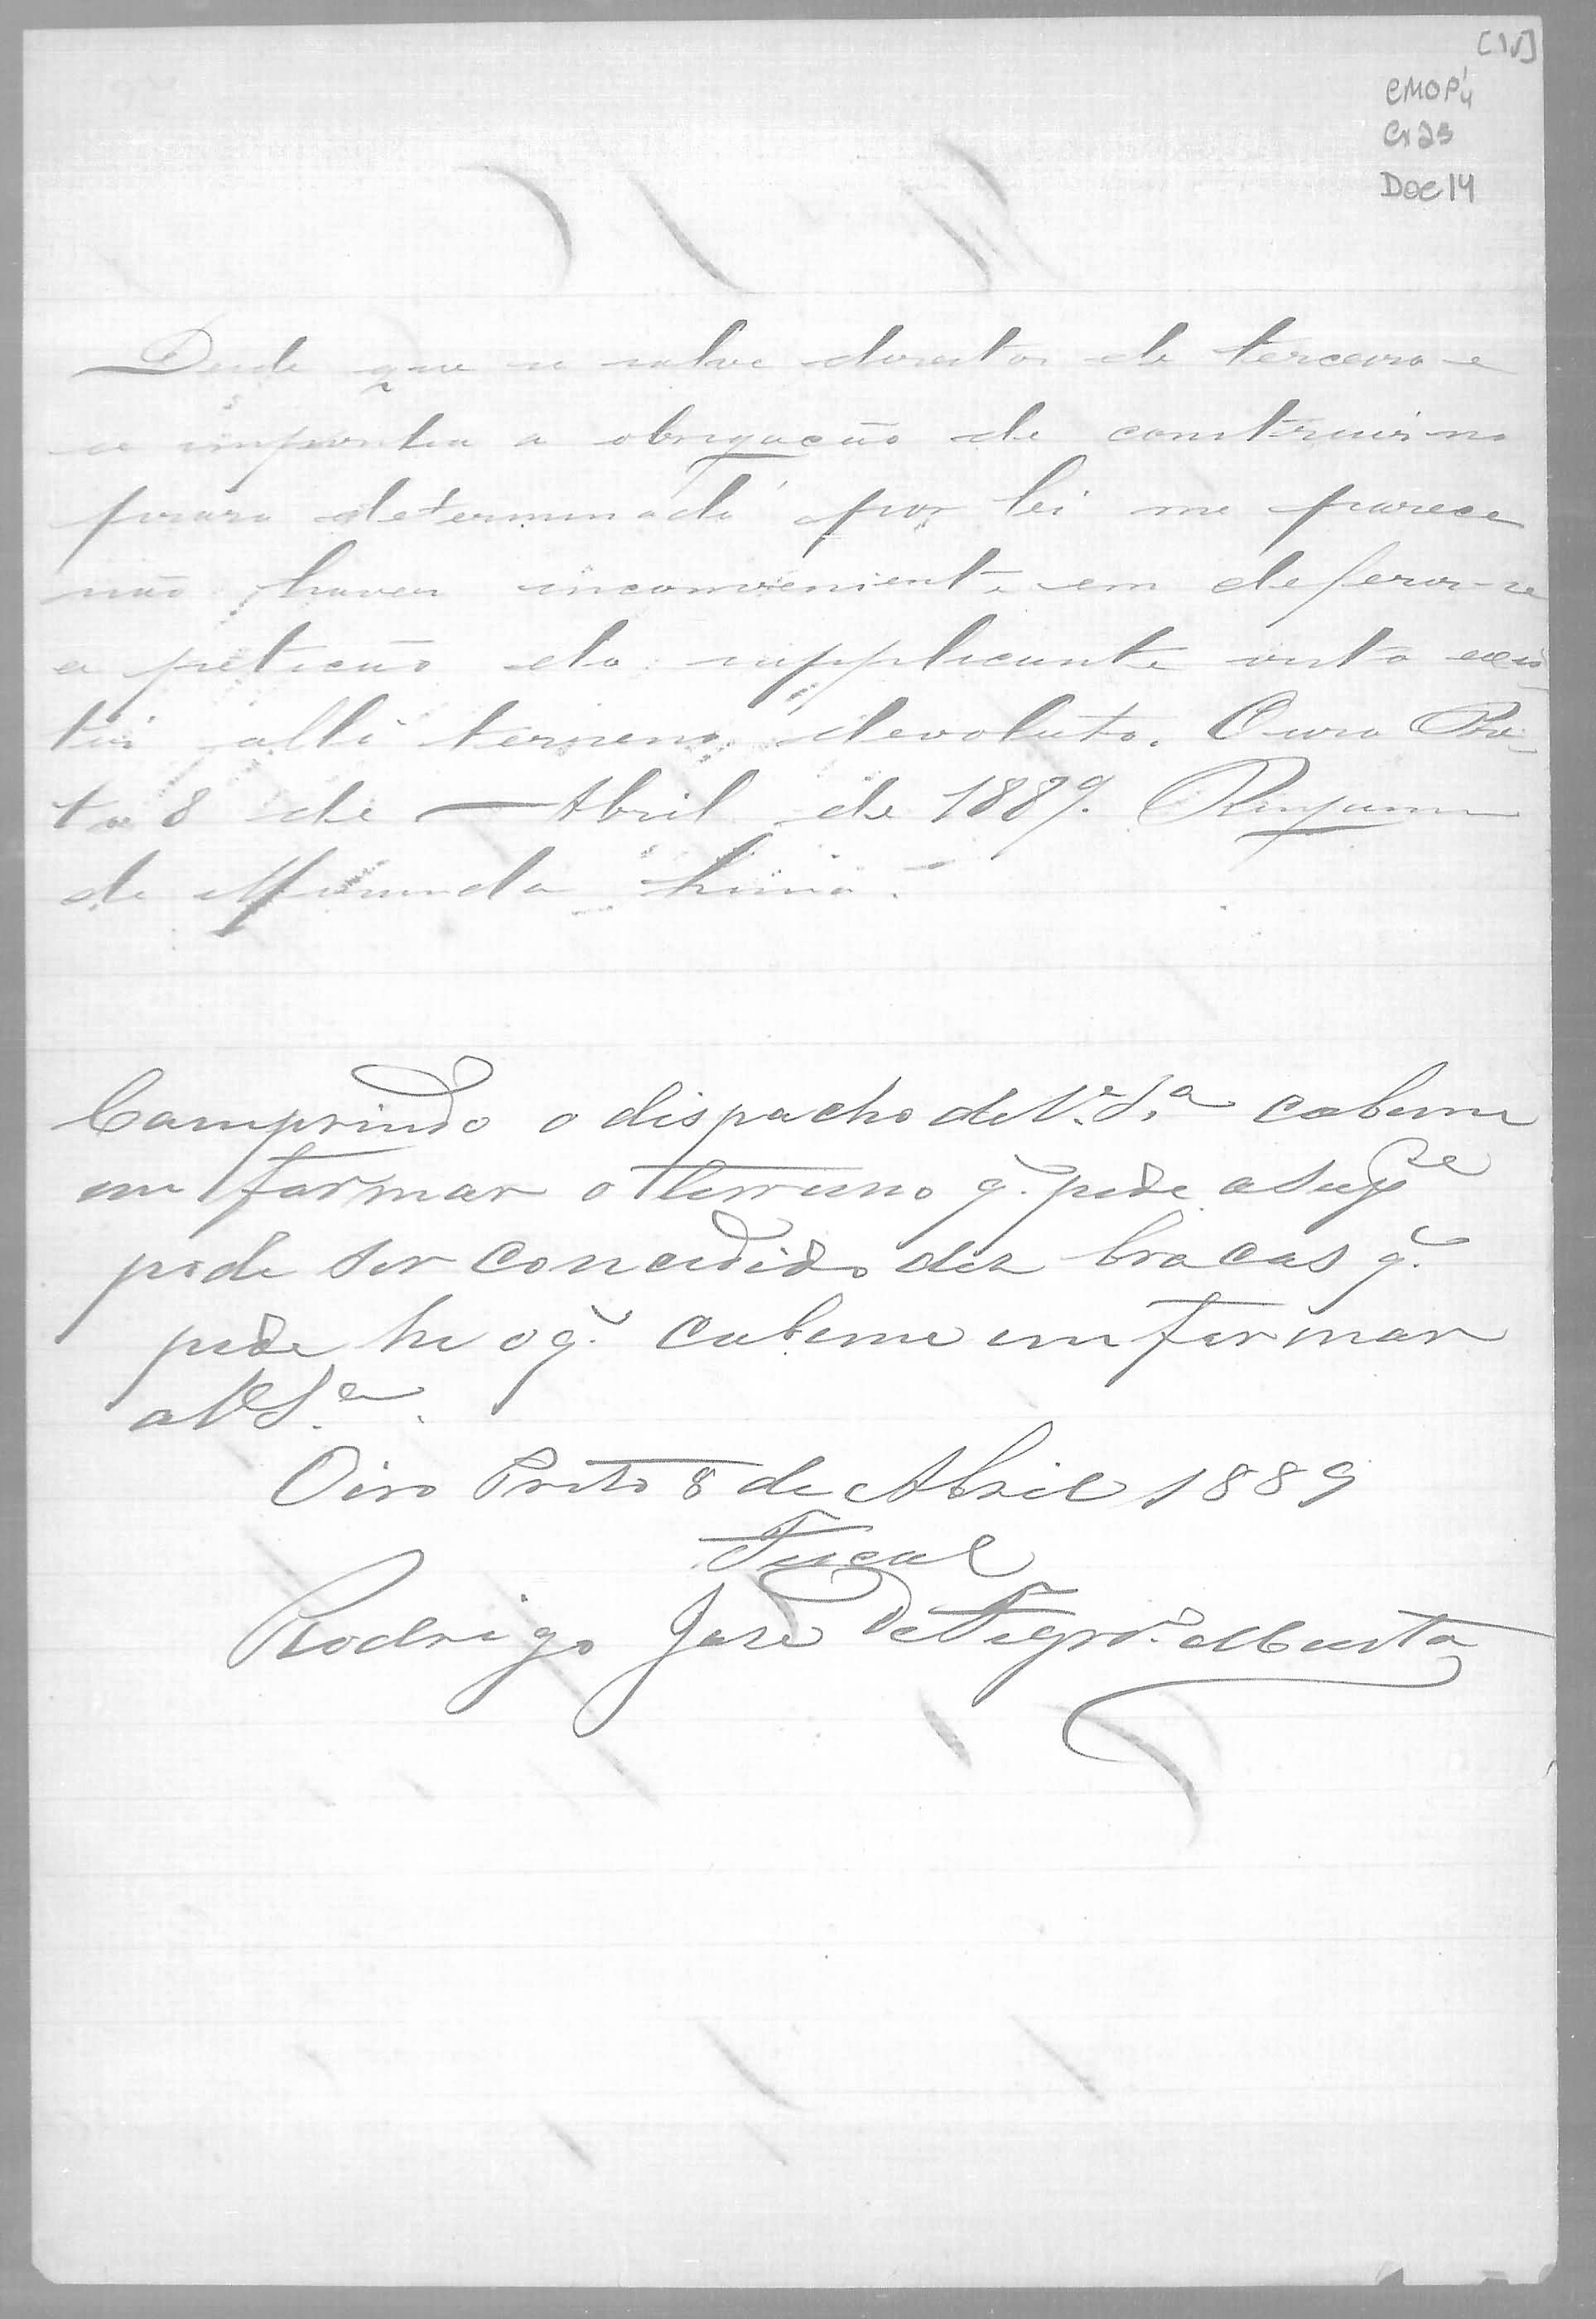 [1v]
CMOP 4
Cx 23
Doc 14
Desde que se salve direitos de terceiro e
se imponha a obrigacão de construir no
praso determinado por lei me parece
não haver inconveniente em deferir-se
a peticão do supplicante visto exis
tir alli terreno devoluto. Ouro Pre-
to 8 de Abril de 1889.
de Miranda Lima.
Comprindo o dispacho de V.ª S.ª cabeme
em formar o terreno q̃. pede a Supe
pode ser concedido dez bracas q̃.
pede he o q̃. cabeme em formar
a V S.ª.
Oiro Preto 8 de Abril 1889
Fiscal
Rodrigo José de Figrd.º Murta